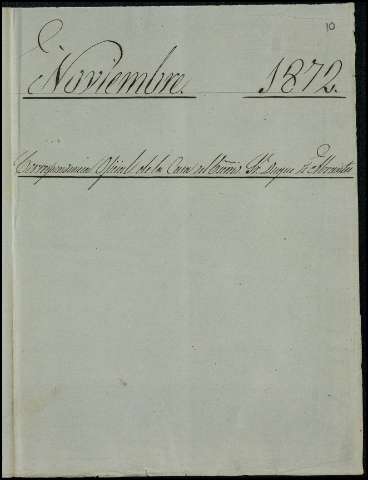 10
Noviembre. 1872.
Correspondencia Oficial de la Casa del Excmo. Sr. Duque de Abrantes